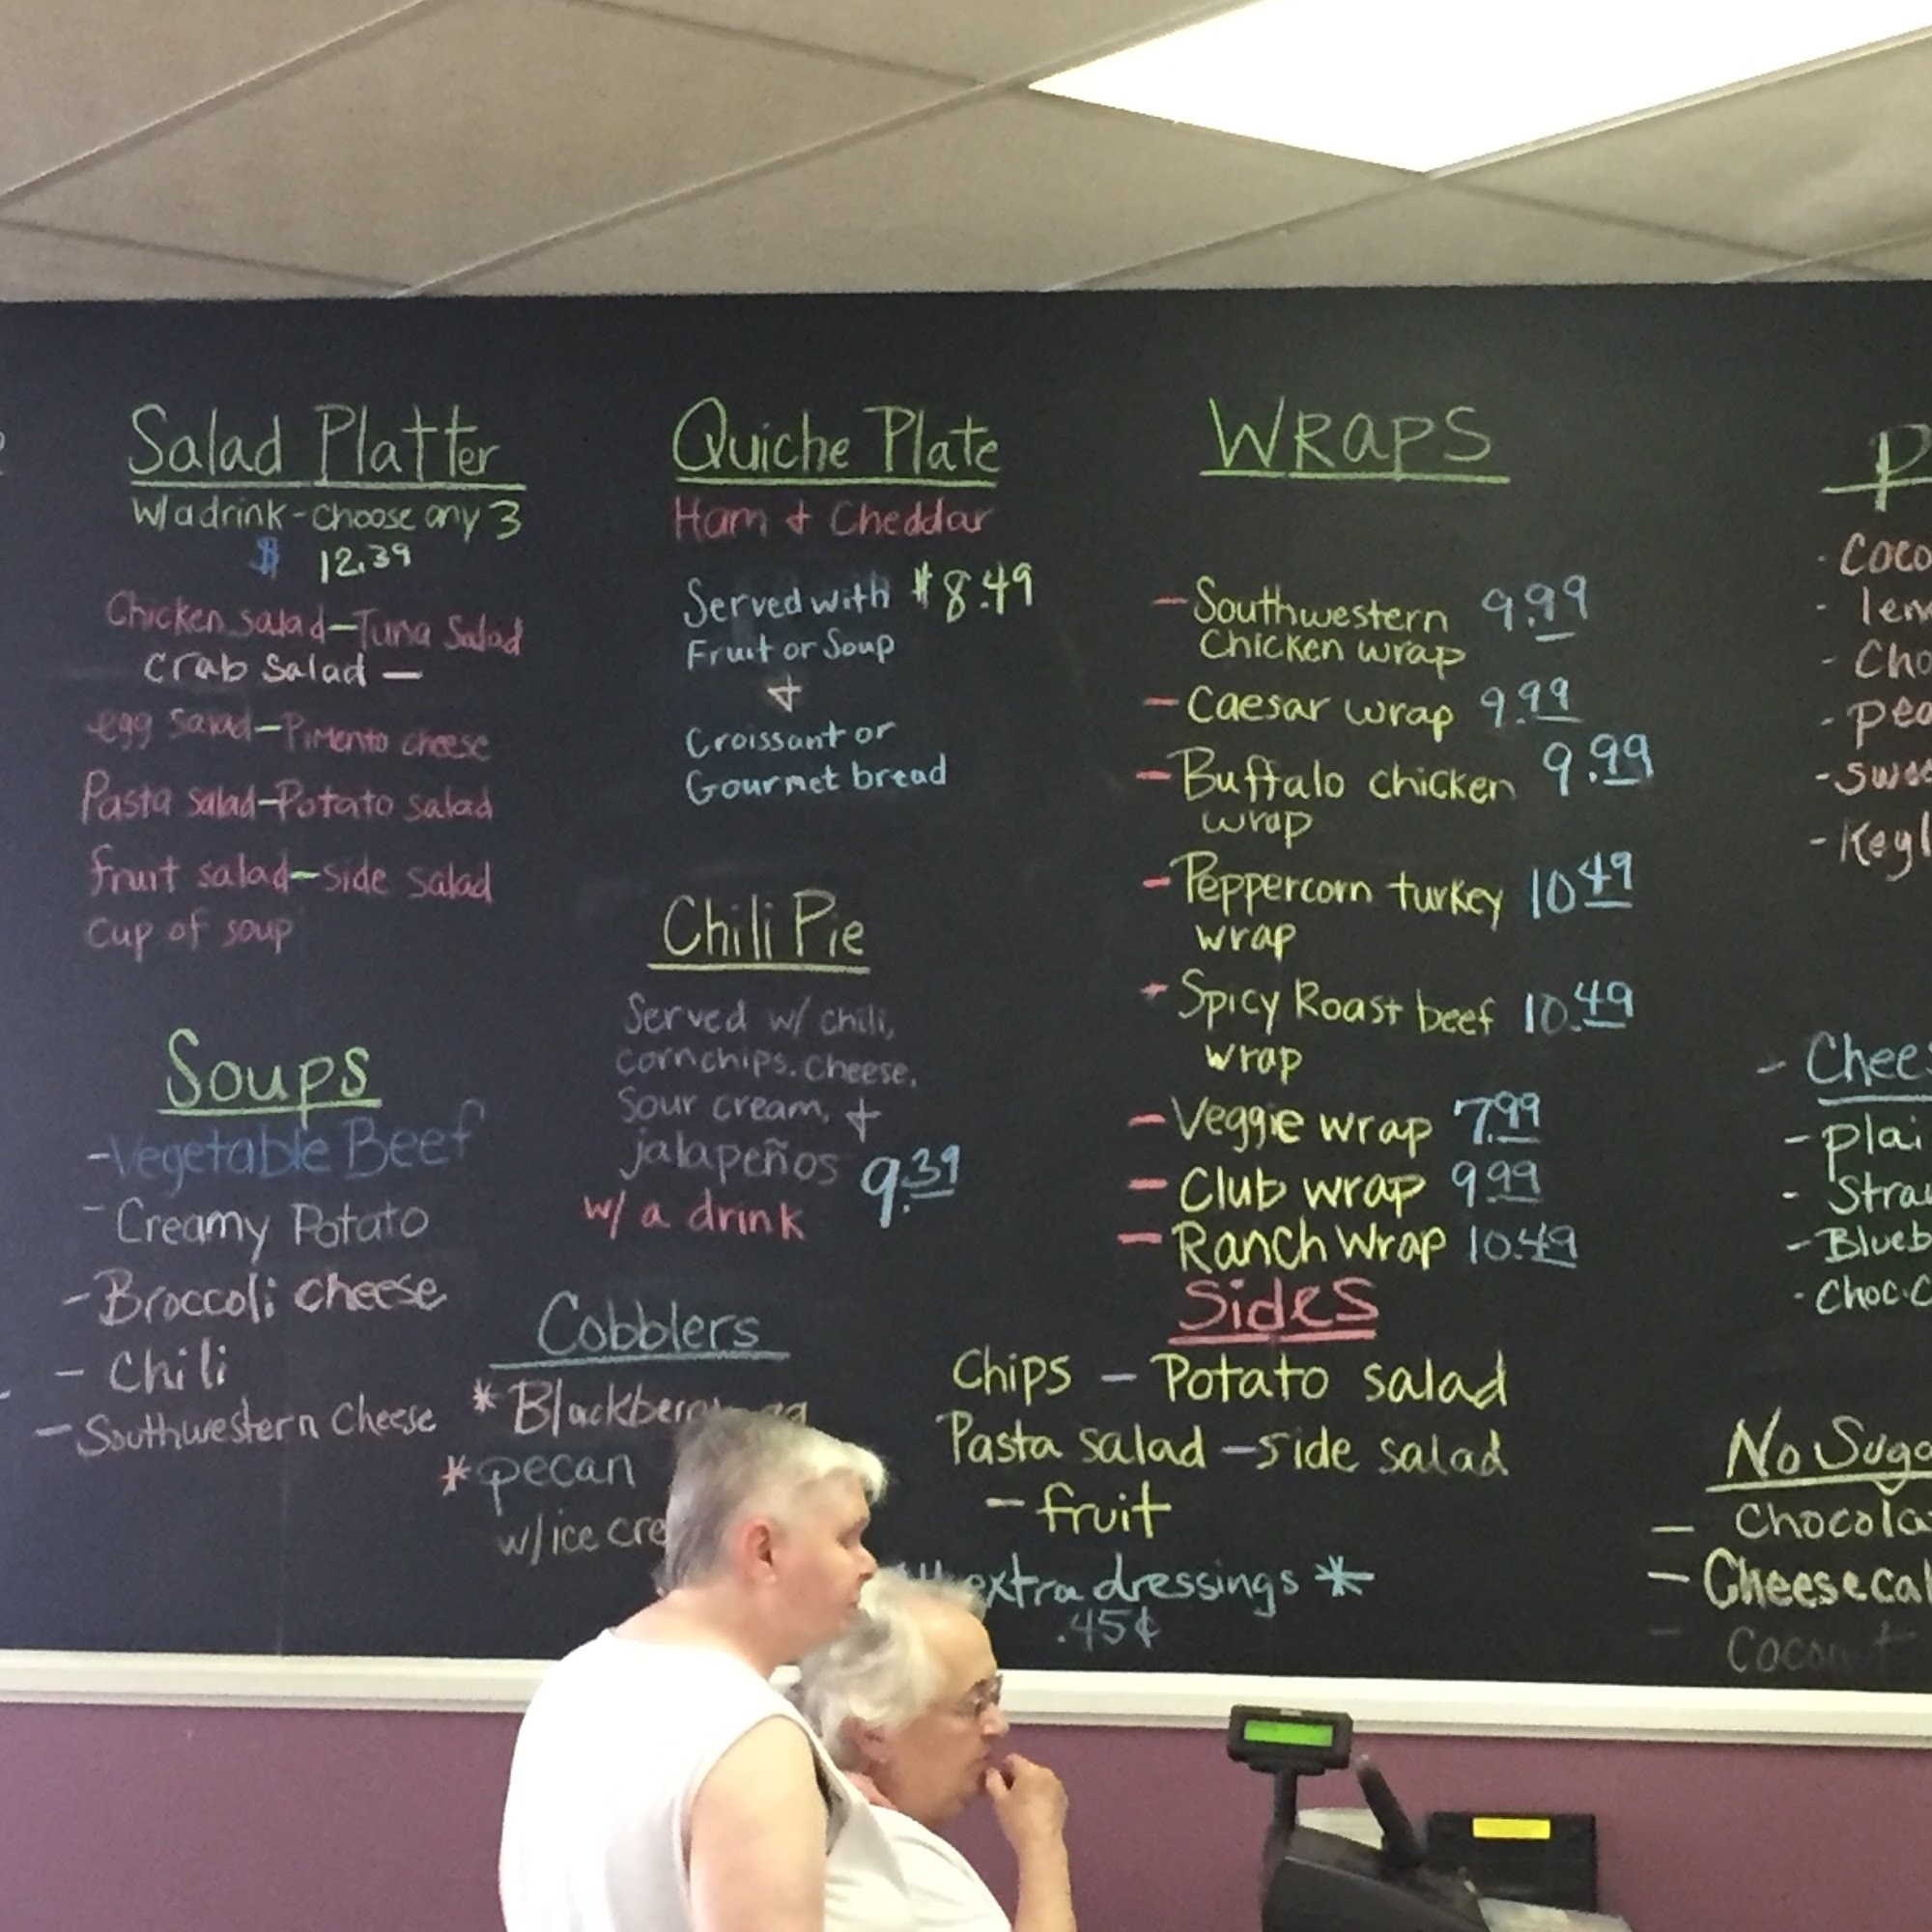 Salad Platter
W/a drink - choose any 3
$ 12.39
Chicken salad — Tuna Salad
Crab Salad —
egg salad — Pimento cheese
Pasta salad — Potato salad
fruit salad — side salad
cup of soup
Soups
- Vegetable Beef
- Creamy Potato
- Broccoli cheese
- Chili
- Southwestern Cheese
Quiche Plate
Ham & Cheddar
Served with $8.49
Fruit or Soup
&
Croissant or
Gourmet bread
Chili Pie
Served w/ chili,
cornchips, cheese,
Sour cream, &
jalapeños 9.39
w/ a drink
Cobblers
*
* pecan
w/ice
WRaPS
- Southwestern 9.99
Chicken wrap
- Caesar wrap 9.99
- Buffalo chicken 9.99
wrap
- Peppercorn turkey 10 49
wrap
- Spicy Roast beef 10.49
wrap
- Veggie wrap 7.99
- Club wrap 9.99
- Ranch Wrap 10.49
Sides
Chips - Potato salad
Pasta salad - side salad
- fruit
extra dressings *
.45¢
No